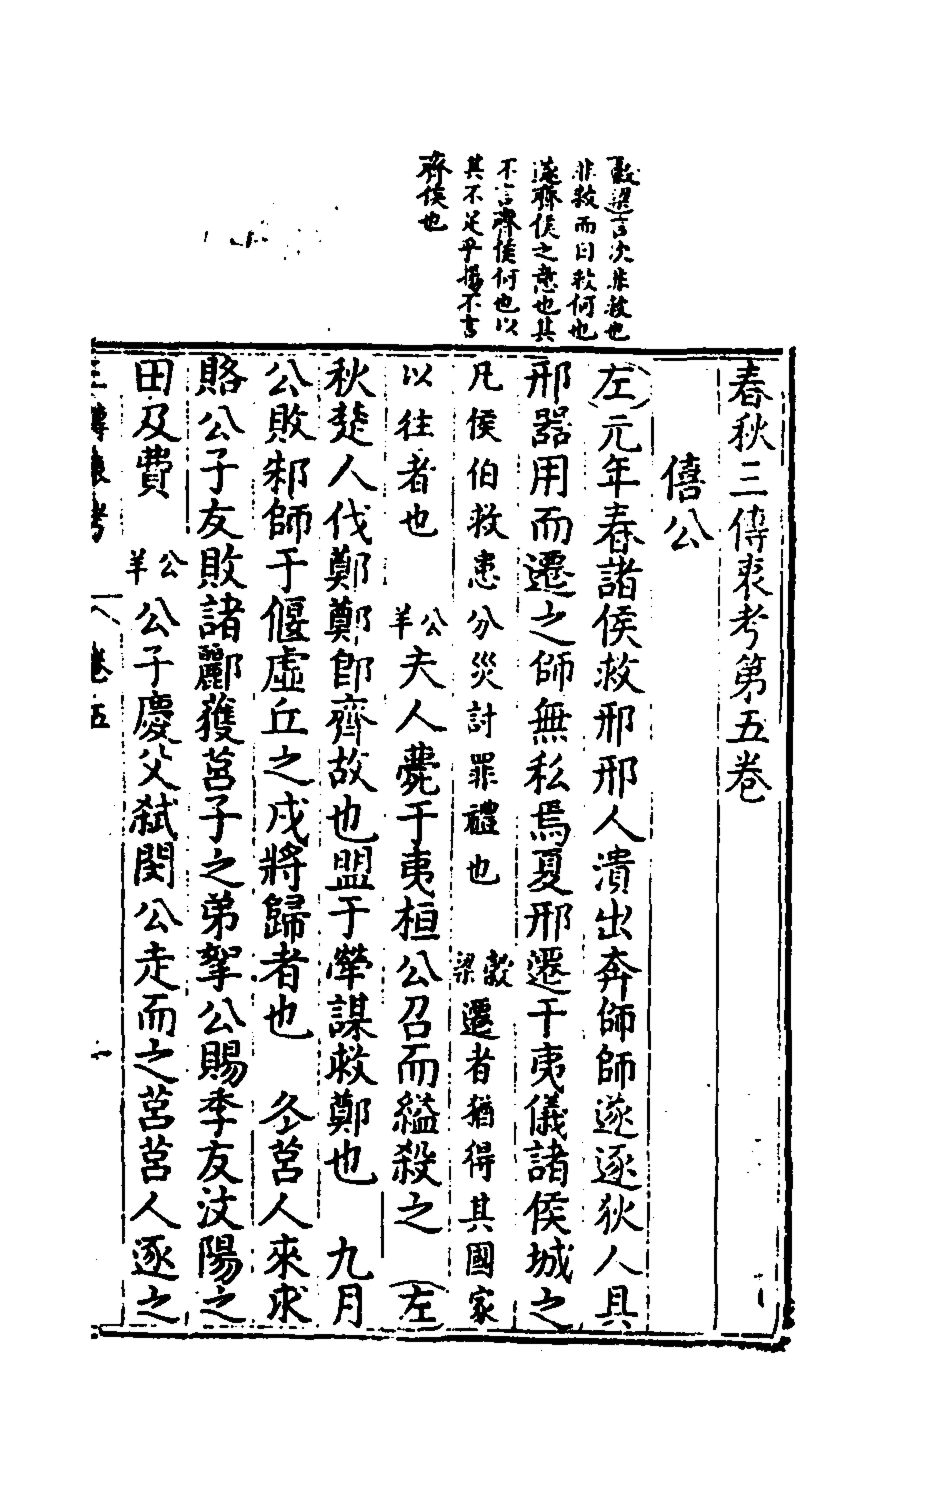 穀梁言次非救也
非救而曰救何也
遂齊侯之意也其
不言齊侯何也以
其不足乎揚不言
齊侯也
春秋三傳衷考第五卷
僖公
左元年春諸侯救邢邢人潰出奔師師遂逐狄人具
邢器用而遷之師無私焉夏邢遷于夷儀諸侯城之
凡侯伯救患分災討罪禮也 穀梁遷者猶得其國家
以往者也 公羊夫人薨于夷桓公召而縊殺之 左
秋楚人伐鄭鄭卽齊故也盟于犖謀救鄭也 九月
公敗邾師于偃虛丘之戍將歸者也 冬莒人來求
賂公子友敗諸酈獲莒子之弟挐公賜季友汶陽之
田及費 公羊公子慶父弒閔公走而之莒莒人逐之
三傳衷考 卷五 一